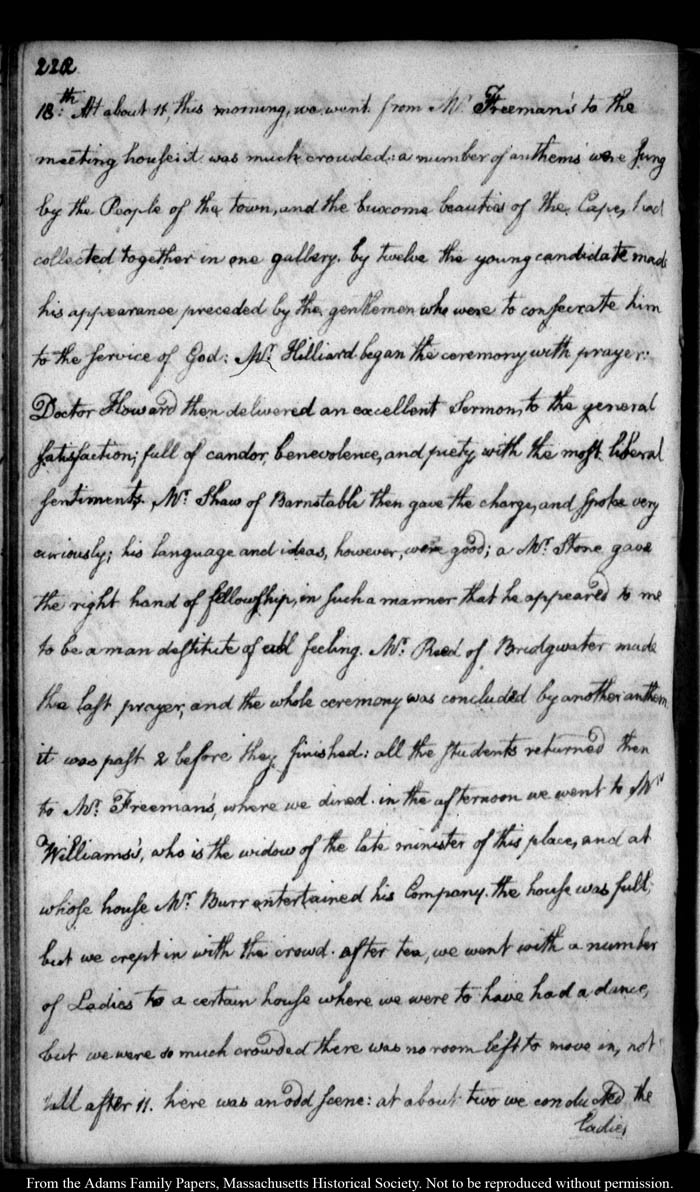 222
18.th At about 11, this morning, we went from Mr. Freeman's to the
meeting house: it was much crowded: a number of anthems were sung
by the People of the town, and the buxome beauties of the Cape, had
collected together in one gallery. by twelve the young candidate made
his appearance preceded by the gentlemen who were to consecrate him
to the service of God: Mr. Hilliard began the ceremony with prayer:
Doctor Howard then delivered an excellent Sermon, to the general
satisfaction; full of candor, benevolence, and piety, with the most liberal
sentiments. Mr. Shaw of Barnstable then gave the charge, and spoke very
curiously; his language and ideas, however, were good; a Mr. Stone gave
the right hand of fellowship, in such a manner that he appeared to me
to be a man destitute of all feeling. Mr. Reed of Bridgwater made
the last prayer, and the whole ceremony was concluded by another anthem
it was past 2 before they finished: all the students returned then
to Mr. Freeman's, where we dined. in the afternoon we went to Mrs.
Williams's, who is the widow of the late minister of this place, and at
whose house Mr. Burr entertained his Company. the house was full,
but we crept in with the crowd. after tea, we went with a number
of Ladies to a certain house where we were to have had a dance,
but we were so much crowded there was no room left to move in, not
till after 11. here was an odd scene: at about two we conducted the
Ladies
From the Adams Family Papers, Massachusetts Historical Society. Not to be reproduced without permission.